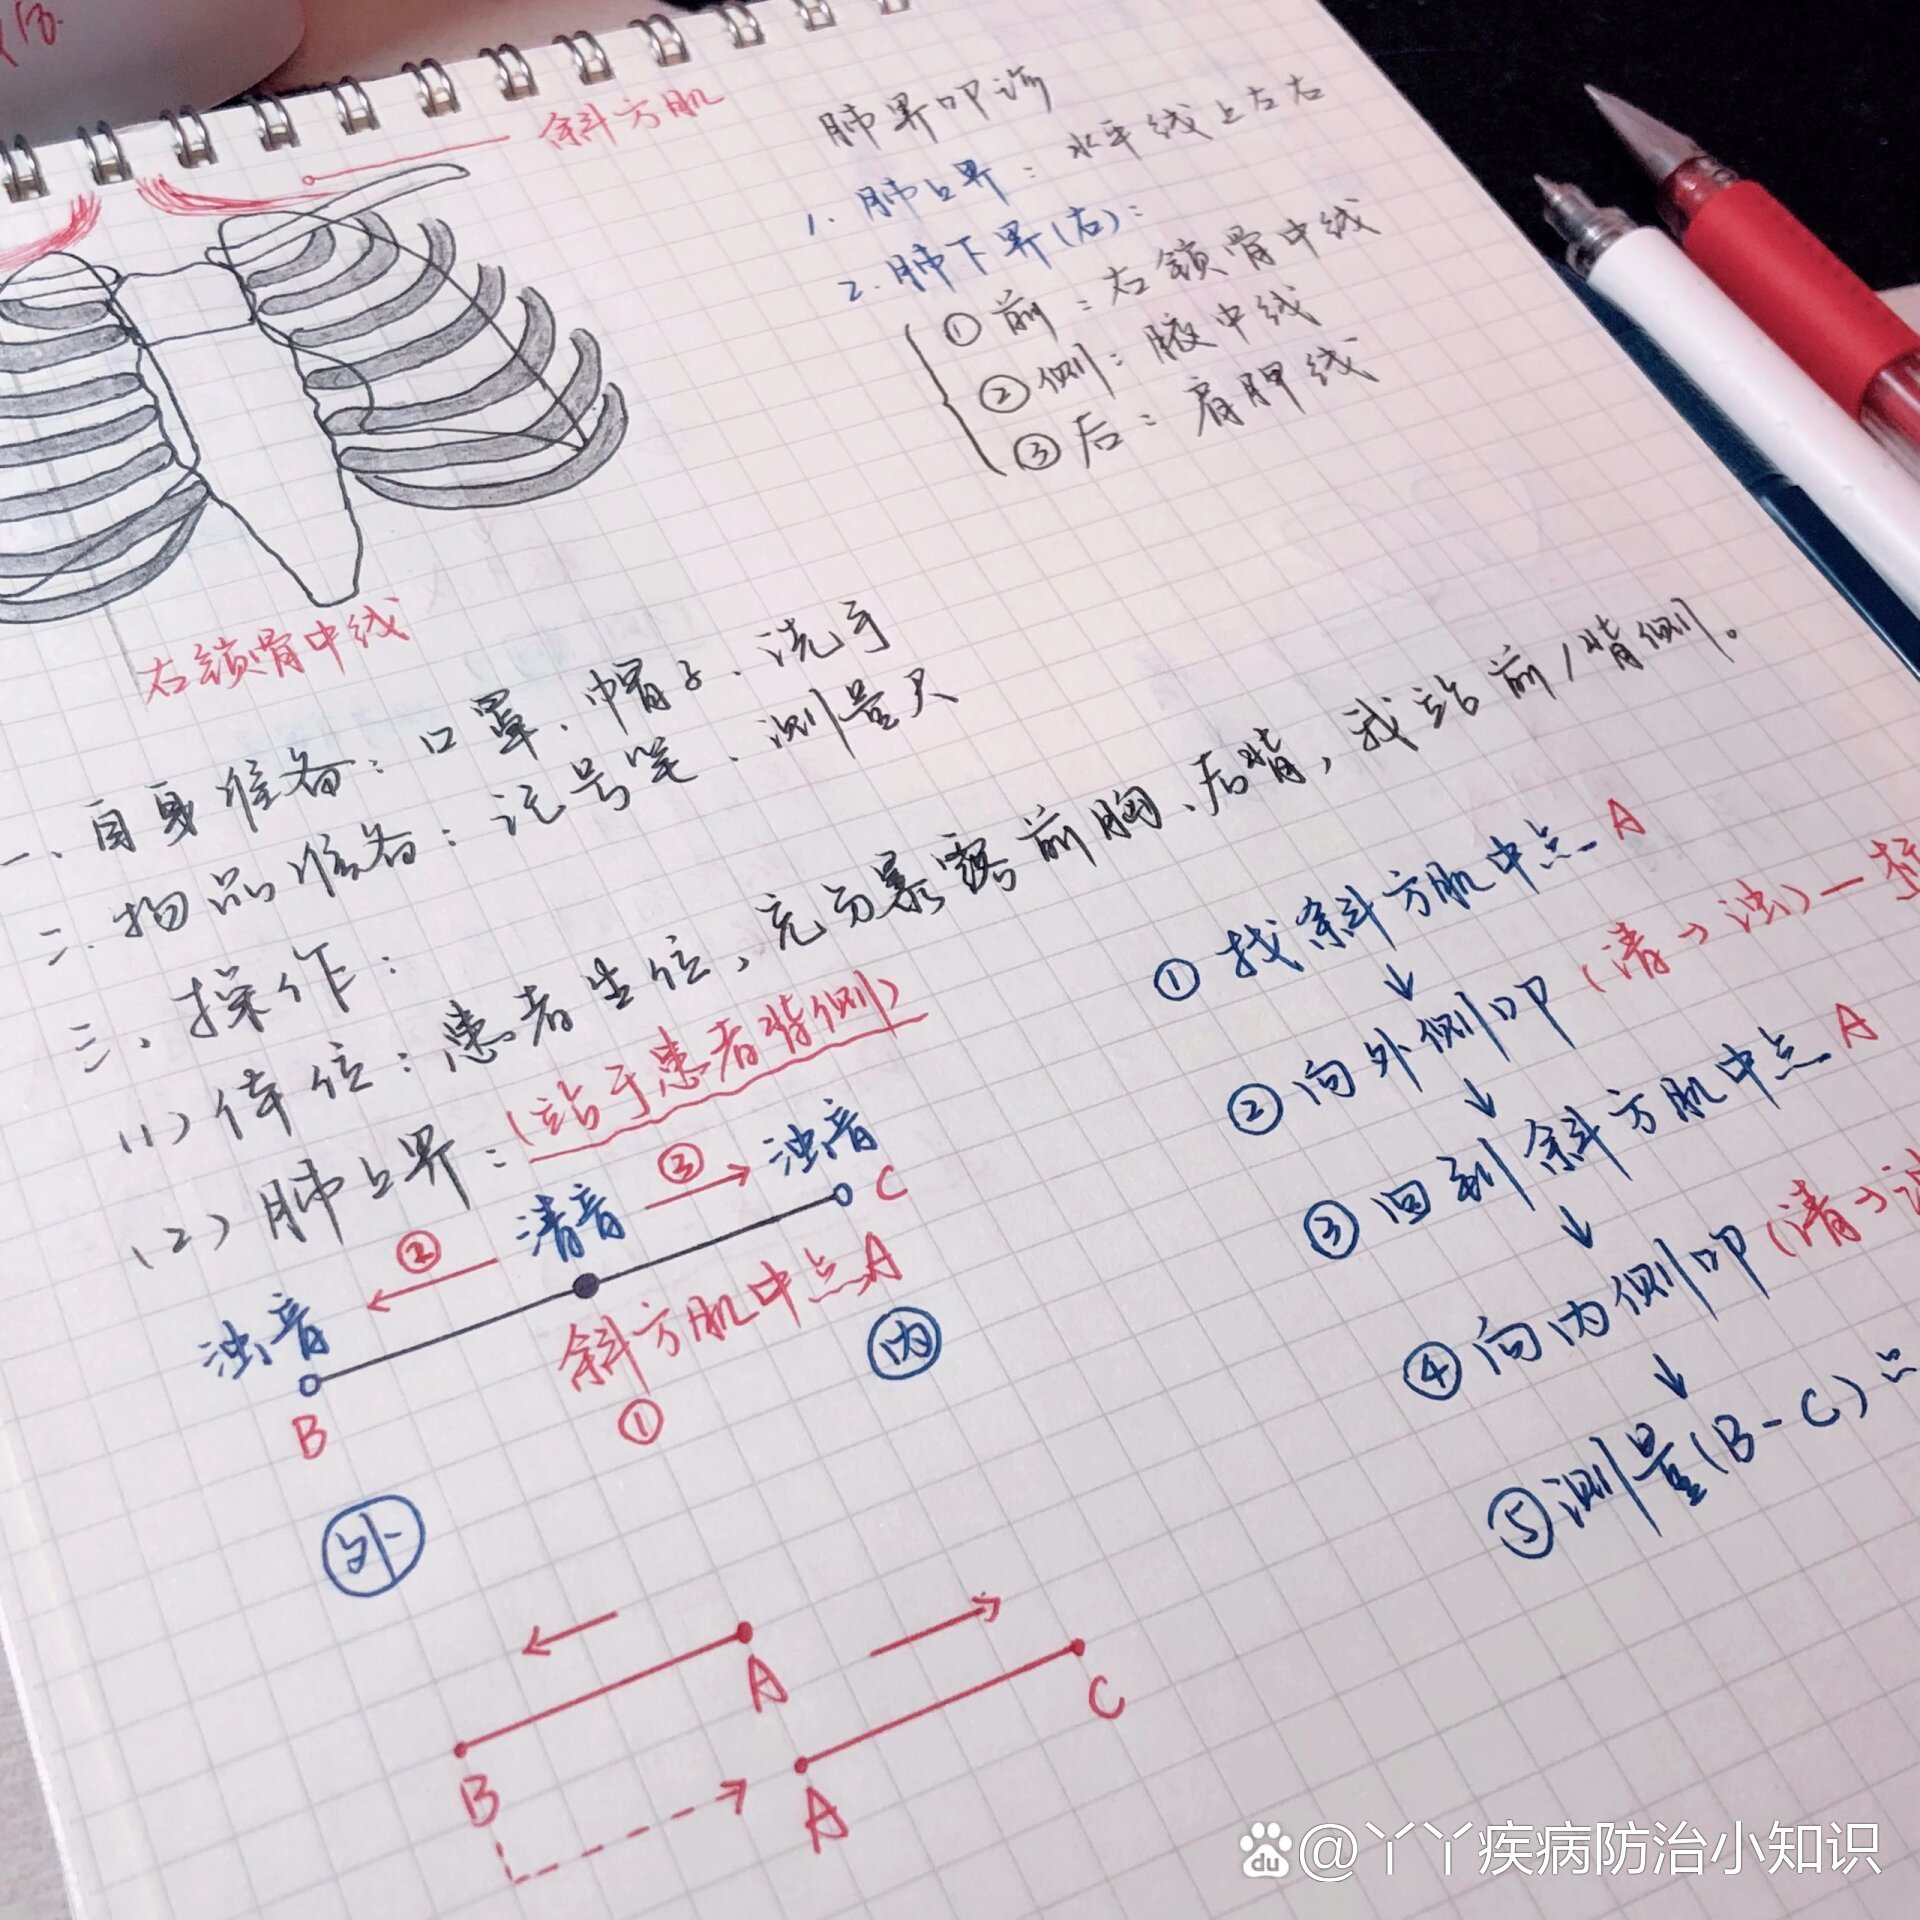 斜方肌
肺界叩诊
1. 肺上界：水平线上左右
2. 肺下界(右)：
① 前：右锁骨中线
② 侧：腋中线
③ 后：肩胛线
右锁骨中线
一、自身准备：口罩、帽子、洗手
二、物品准备：记号笔、测量尺
三、操作：
(1) 体位：患者坐位，充分暴露前胸、后背，我站前/背侧。
(2) 肺上界：(站于患者背侧)
浊音 ② 清音 ③ 浊音
B 斜方肌中点A C
①
外 内
① 找斜方肌中点 A
↓
② 向外侧叩 (清→浊)—
↓
③ 回到斜方肌中点 A
↓
④ 向内侧叩 (清→
↓
⑤ 测量(B-C)
A C
B A
du @丫丫疾病防治小知识